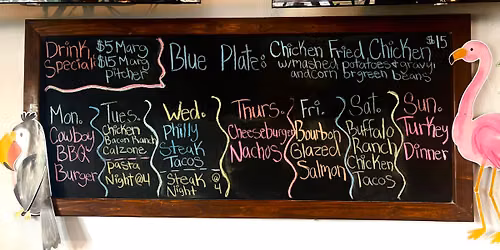 Drink Special:
$5 Marg
$15 Marg pitcher
Blue Plate:
Chicken Fried Chicken $15
w/mashed potatoes + gravy
and corn br green beans
Mon.
Cowboy
BBQ
Burger
Tues.
Chicken
Bacon Ranch
Calzone
Pasta
Night @4
Wed.
Philly
Steak
Tacos
Steak @
Night 4
Thurs.
Cheeseburger
Nachos
Fri.
Bourbon
Glazed
Salmon
Sat.
Buffalo
Ranch
Chicken
Tacos
Sun.
Turkey
Dinner